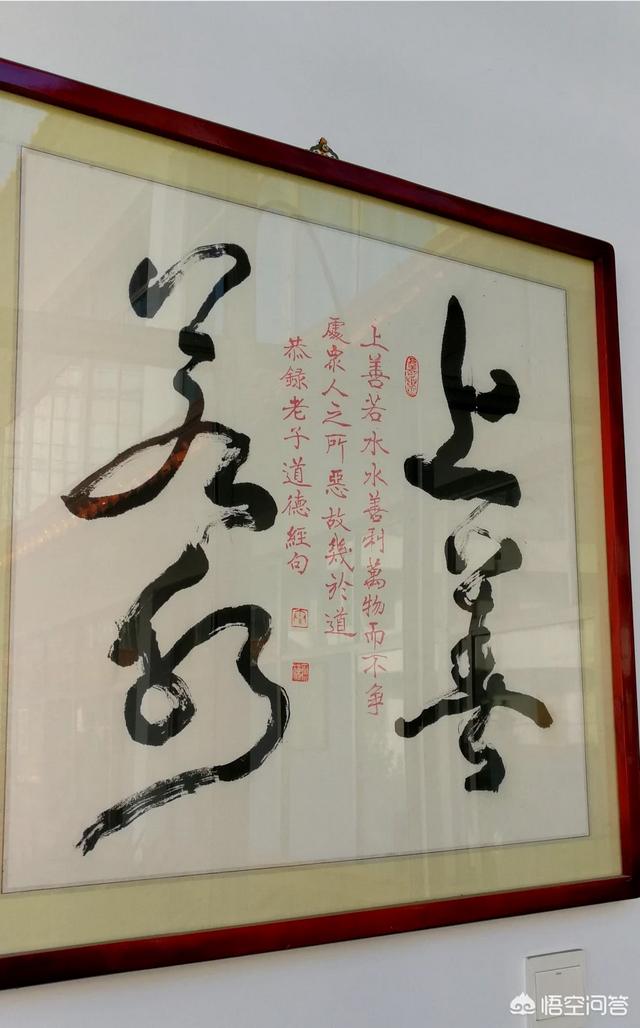 上善
若水
上善若水水善利萬物而不争
處衆人之所惡故幾於道
恭録老子道德經句
悟空问答